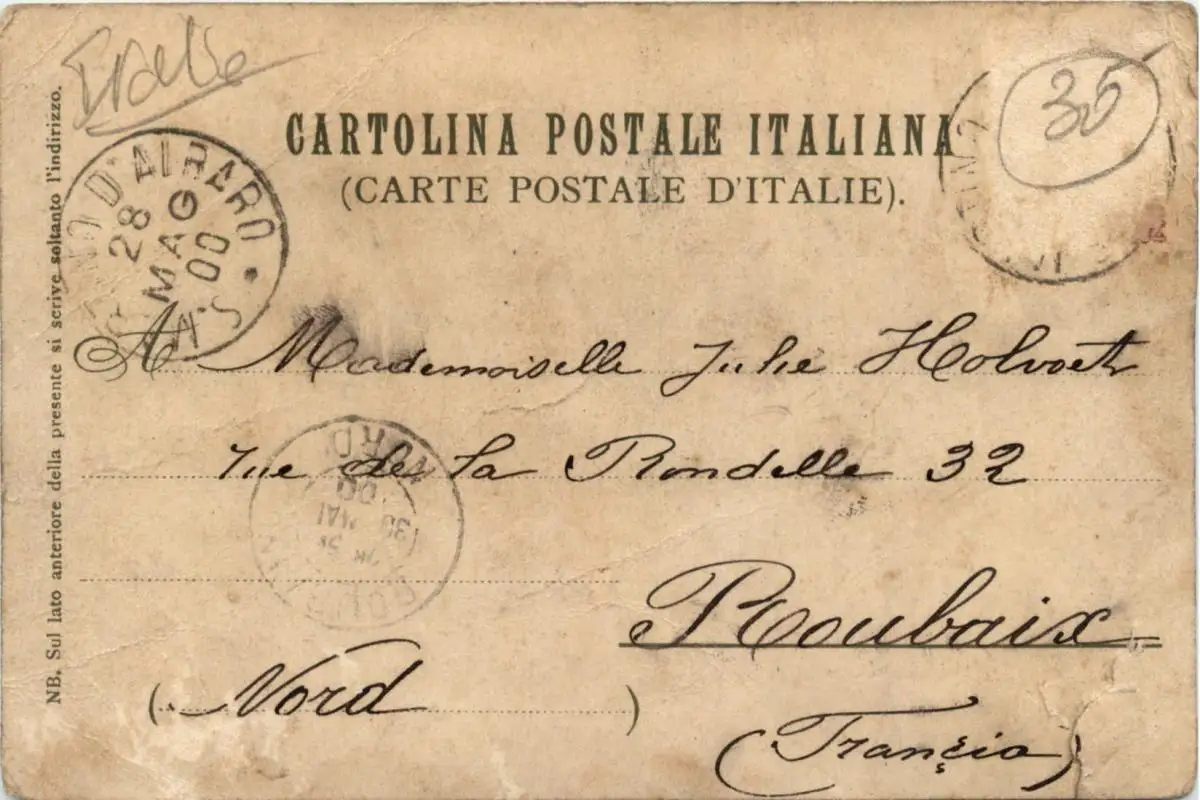 Italie
35
CARTOLINA POSTALE ITALIANA
(CARTE POSTALE D'ITALIE).
NB. Sul lato anteriore della presente si scrive soltanto l'indirizzo.
D'ALBARO
28
MAG
00
A Mademoiselle Julie Holvoet
rue de la Rondelle 32
NORD
00
Roubaix
(Nord)
(Francia)